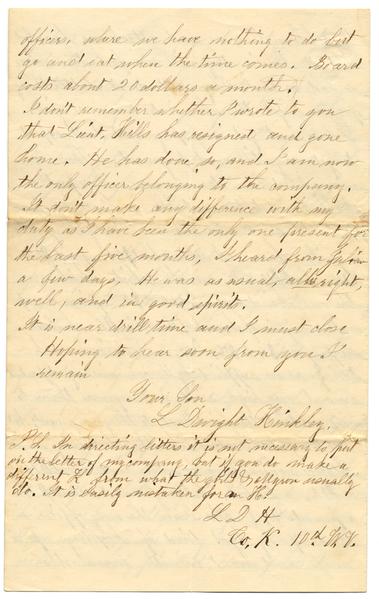 officer, where we have nothing to do but
go and eat when the time comes. Board
costs about 20 dollars a month.
I don't remember whether I wrote to you
that Lieut. Hills has resigned and gone
home. He has done so, and I am now
the only officer belonging to the company.
It don't make any difference with my
duty as I have been the only one present for
the last five months, I heard from
a few days, He was as usual, all right,
well, and in good spirits.
It is near drill time and I must close
Hoping to hear soon from you I
remain
Your Son
L Dwight Hinkley.
P.S. In directing letters it is not necessary to put
on the letter of my company, but if you do make a
different K from what the girls usually
do. It is easily mistaken for an H.
L D H
Co. K. 10th N.V.